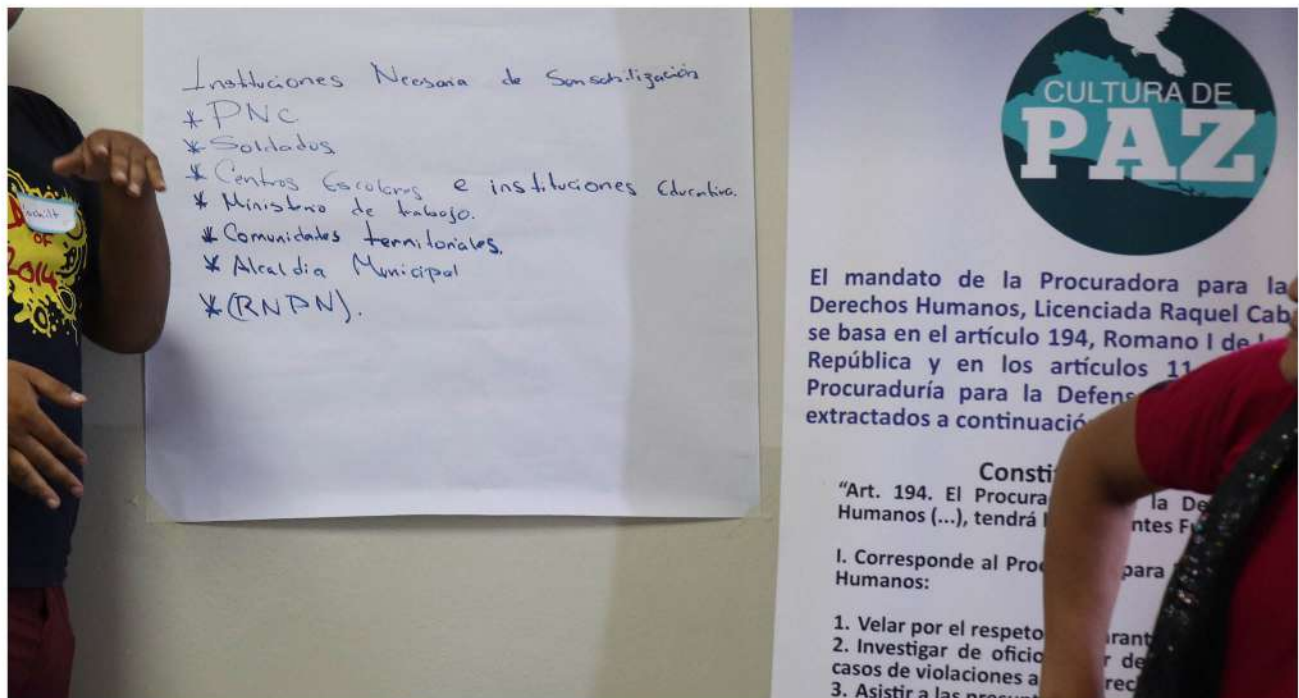 Instituciones Necesaria de Sensabilización
* PNC
* Soldados
* Centros Escolares e instituciones Educativa.
* Ministerio de trabajo.
* Comunidades territoriales.
* Alcaldia Municipal
* (RNPN).
OF
2014
CULTURA DE
PAZ
El mandato de la Procuradora para la
Derechos Humanos, Licenciada Raquel Cab
se basa en el artículo 194, Romano I de
República y en los artículos 11
Procuraduría para la Defens
extractados a continuació
Consti
"Art. 194. El Procura la De
Humanos (...), tendrá ntes F
I. Corresponde al Pro para
Humanos:
1. Velar por el respeto arant
2. Investigar de oficio r de
casos de violaciones a rec
3. Asistir a las